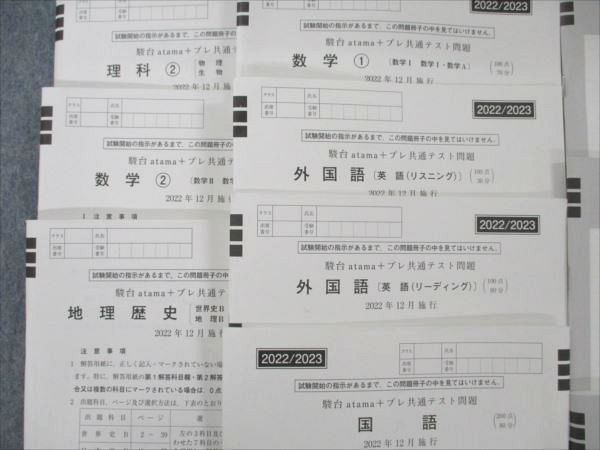 試験開始の指示があるまで、この問題冊子の中を見てはいけません。
駿台 atama＋プレ共通テスト
理科 ②
物理
生物
2022年12月施
2022/2023
試験開始の指示があるまで、この問題冊子の中を見てはいけません。
駿台 atama＋プレ共通テスト問題
数学 ① 〔数学Ⅰ 数学Ⅰ・数学A〕 (100点 70分)
2022年12月施行
クラス 氏名
出席番号 受験番号
試験開始の指示があるまで、この問題冊子の中
駿台 atama＋プレ共通テ
数学 ② 〔数学Ⅱ 数
2022年12月施
Ⅰ 注意事項
クラス 氏名
出席番号 受験番号
2022/2023
試験開始の指示があるまで、この問題冊子の中を見てはいけません。
駿台 atama＋プレ共通テスト問題
外国語 〔英語（リスニング）〕 (100点 30分)
2022年12月施行
クラス 氏名
出席番号 受験番号
試験開始の指示があるまで、この問題冊子の中
駿台 atama＋プレ共通テ
地理歴史
世界史B
地理B
2022年12月施
注意事項
1 解答用紙に、正しく記入・マークされていない場
ます。特に、解答用紙の第1解答科目欄・第2解答
合又は複数の科目にマークされている場合は、0点
2 出題科目、ページ及び選択方法は、下表のとおり
出題科目 ページ 選
世界史B 2～39 左の3科目及び
わせた7科目の
クラス 氏名
出席番号 受験番号
2022/2023
試験開始の指示があるまで、この問題冊子の中を見てはいけません。
駿台 atama＋プレ共通テスト問題
外国語 〔英語（リーディング）〕 (100点 80分)
2022年12月施行
2022/2023
クラス 氏名
出席番号 受験番号
試験開始の指示があるまで、この問題冊子の中を見てはいけません。
駿台 atama＋プレ共通テスト問題
国語 (200点 80分)
2022年12月施行